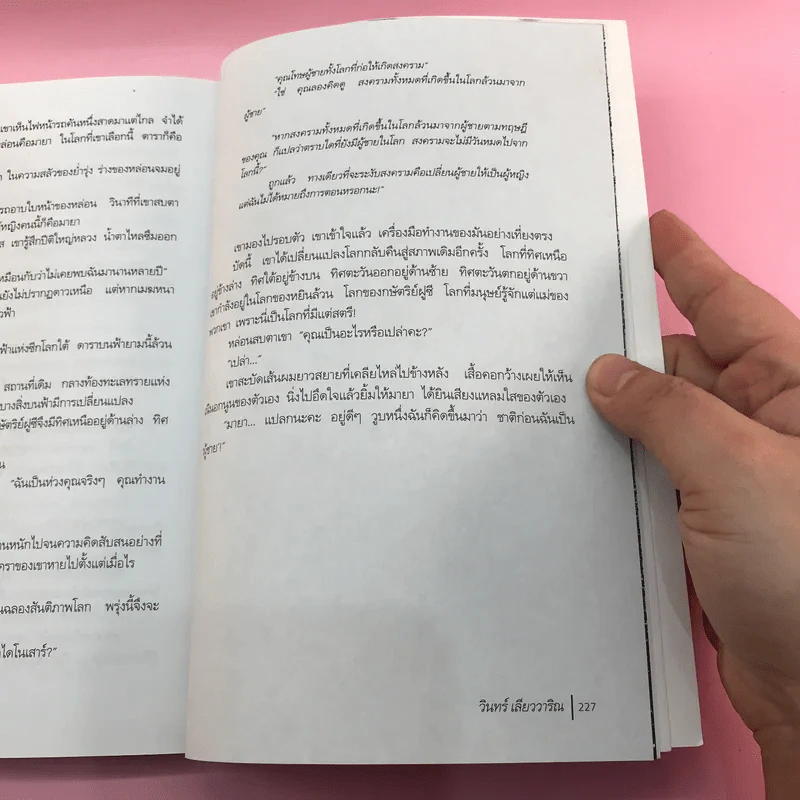 เขาเห็นไฟหน้ารถคันหนึ่งสาดมาแต่ไกล จำได้
หล่อนคือมายา ในโลกที่เขาเลือกนี้ ดาราก็คือ
ในความสลัวของย่ำรุ่ง ร่างของหล่อนจมอยู่
รถอาบใบหน้าของหล่อน วินาทีที่เขาสบตา
ผู้หญิงคนนี้ก็คือมายา
เขารู้สึกปีติใหญ่หลวง น้ำตาไหลซึมออก
เหมือนกับว่าไม่เคยพบฉันมานานหลายปี"
ยังไม่ปรากฏดาวเหนือ แต่หากเมฆหนา
ฟ้าแห่งซีกโลกใต้ ดาราบนฟ้ายามนี้ล้วน
สถานที่เดิม กลางท้องทะเลทรายแห่ง
บางสิ่งบนฟ้ามีการเปลี่ยนแปลง
กษัตริย์ฝูซีจึงมีทิศเหนืออยู่ด้านล่าง ทิศ
"ฉันเป็นห่วงคุณจริงๆ คุณทำงาน
านหนักไปจนความคิดสับสนอย่างที่
คราของเขาหายไปตั้งแต่เมื่อไร
นฉลองสันติภาพโลก พรุ่งนี้จึงจะ
ไดโนเสาร์?"
"คุณโทษผู้ชายทั้งโลกที่ก่อให้เกิดสงคราม"
"ใช่ คุณลองคิดดู สงครามทั้งหมดที่เกิดขึ้นในโลกล้วนมาจาก
ผู้ชาย"
"หากสงครามทั้งหมดที่เกิดขึ้นในโลกล้วนมาจากผู้ชายตามทฤษฎี
ของคุณ ก็แปลว่าตราบใดที่ยังมีผู้ชายในโลก สงครามจะไม่มีวันหมดไปจาก
โลกนี้?"
ถูกแล้ว ทางเดียวที่จะระงับสงครามคือเปลี่ยนผู้ชายให้เป็นผู้หญิง
แต่ฉันไม่ได้หมายถึงการตอนหรอกนะ!"
เขามองไปรอบตัว เขาเข้าใจแล้ว เครื่องมือทำงานของมันอย่างเที่ยงตรง
บัดนี้ เขาได้เปลี่ยนแปลงโลกกลับคืนสู่สภาพเดิมอีกครั้ง โลกที่ทิศเหนือ
อยู่ข้างล่าง ทิศใต้อยู่ข้างบน ทิศตะวันออกอยู่ด้านซ้าย ทิศตะวันตกอยู่ด้านขวา
เขากำลังอยู่ในโลกของหยินล้วน โลกของกษัตริย์ฝูซี โลกที่มนุษย์รู้จักแต่แม่ของ
พวกเขา เพราะนี่เป็นโลกที่มีแต่สตรี!
หล่อนสบตาเขา "คุณเป็นอะไรหรือเปล่าคะ?"
"เปล่า..."
เขาสะบัดเส้นผมยาวสยายที่เคลียไหล่ไปข้างหลัง เสื้อคอกว้างเผยให้เห็น
เนินอกนูนของตัวเอง นิ่งไปอึดใจแล้วยิ้มให้มายา ได้ยินเสียงแหลมใสของตัวเอง
"มายา... แปลกนะคะ อยู่ดีๆ วูบหนึ่งฉันก็คิดขึ้นมาว่า ชาติก่อนฉันเป็น
ผู้ชาย!"
วินทร์ เลียววาริณ | 227